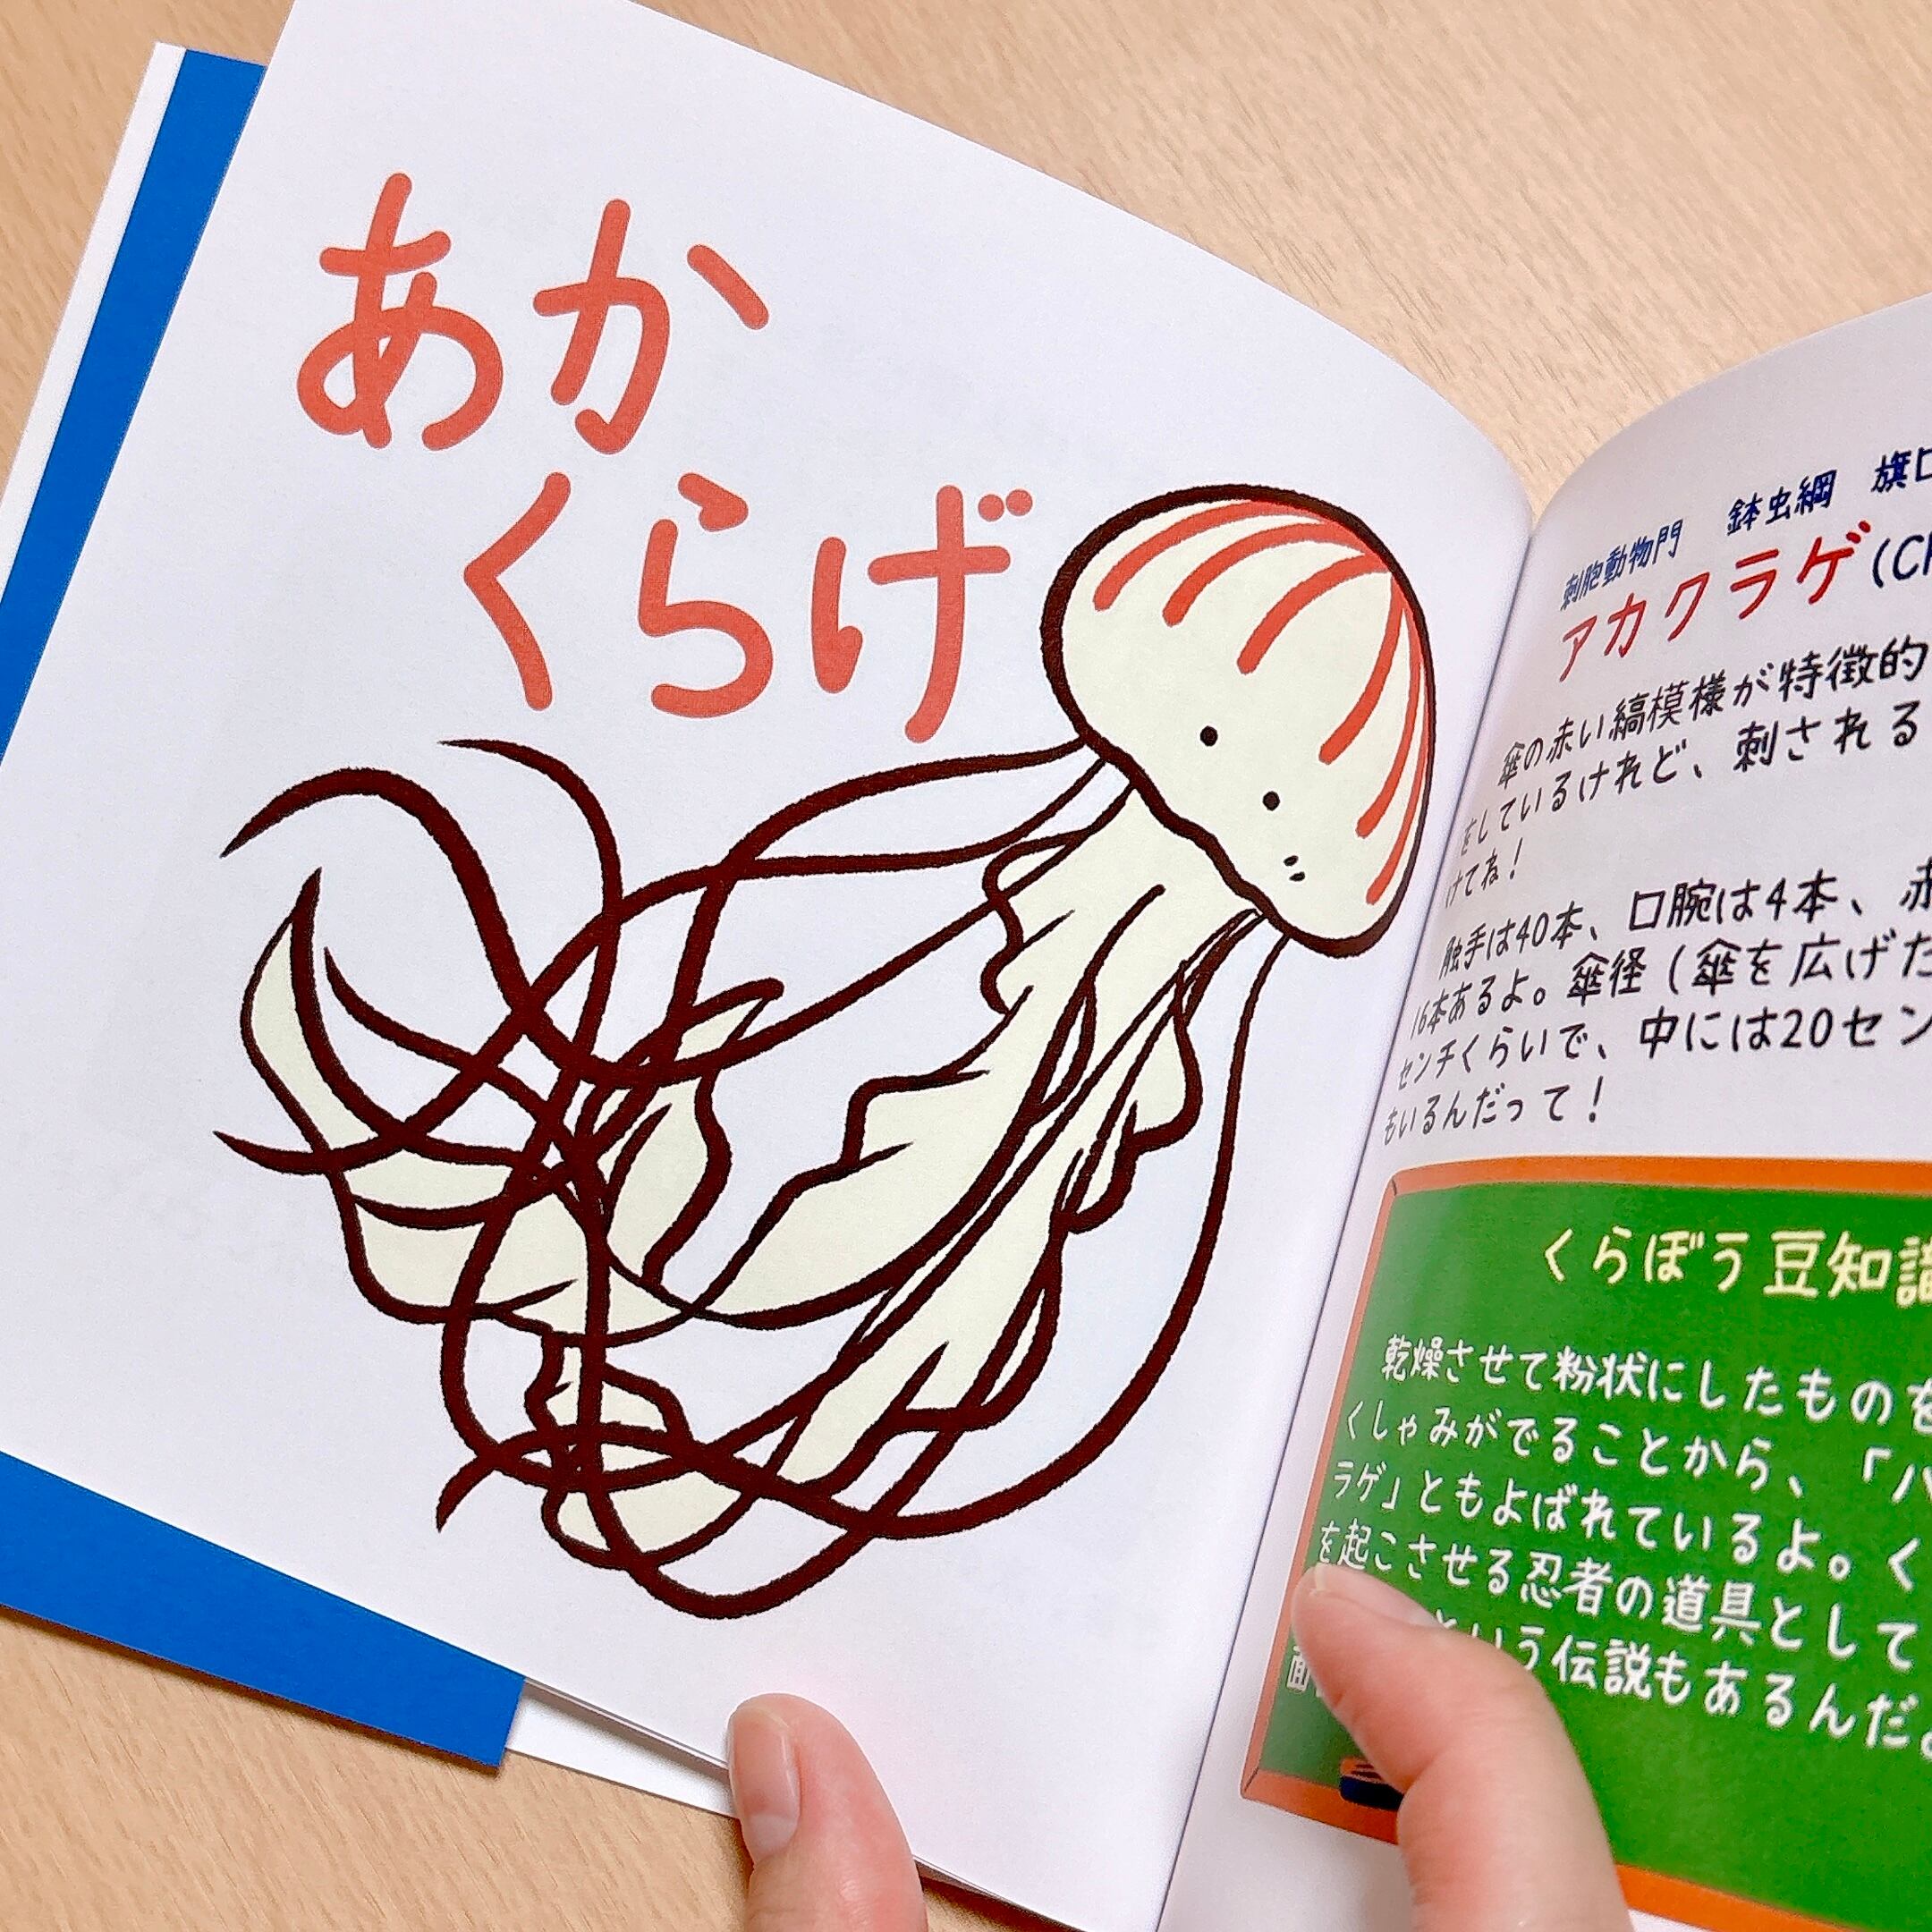 あか
くらげ
刺胞動物門 鉢虫綱 旗口
アカクラゲ(Ch
傘の赤い縞模様が特徴的
をしているけれど、刺される
けてね!
触手は40本、口腕は4本、赤
16本あるよ。傘径(傘を広げた
センチくらいで、中には20セン
もいるんだって!
くらぼう豆知識
乾燥させて粉状にしたものを
くしゃみがでることから、「ハ
ラゲ」ともよばれているよ。く
を起こさせる忍者の道具として
という伝説もあるんだ。